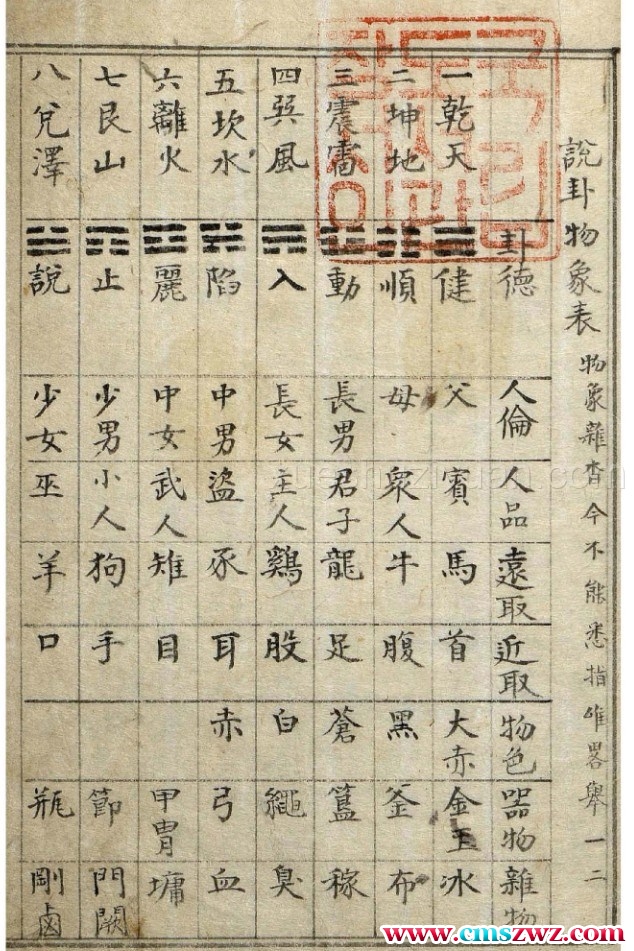 說卦物象表 物象雜沓今不能悉指唯畧舉一二
卦德 人倫 人品 遠取 近取 物色 器物 雜物
一乾天 ䷀ 健 父 賓 馬 首 大赤 金玉 冰
二坤地 ䷁ 順 母 眾人 牛 腹 黑 釜 布
三震雷 ䷲ 動 長男 君子 龍 足 蒼 簋 稼
四巽風 ䷸ 入 長女 主人 鷄 股 白 繩 臭
五坎水 ䷜ 陷 中男 盜 豕 耳 赤 弓 血
六離火 ䷝ 麗 中女 武人 雉 目 甲冑 墉
七艮山 ䷳ 止 少男 小人 狗 手 節 門闕
八兌澤 ䷹ 說 少女 巫 羊 口 瓶 剛鹵
www.cmszwz.com